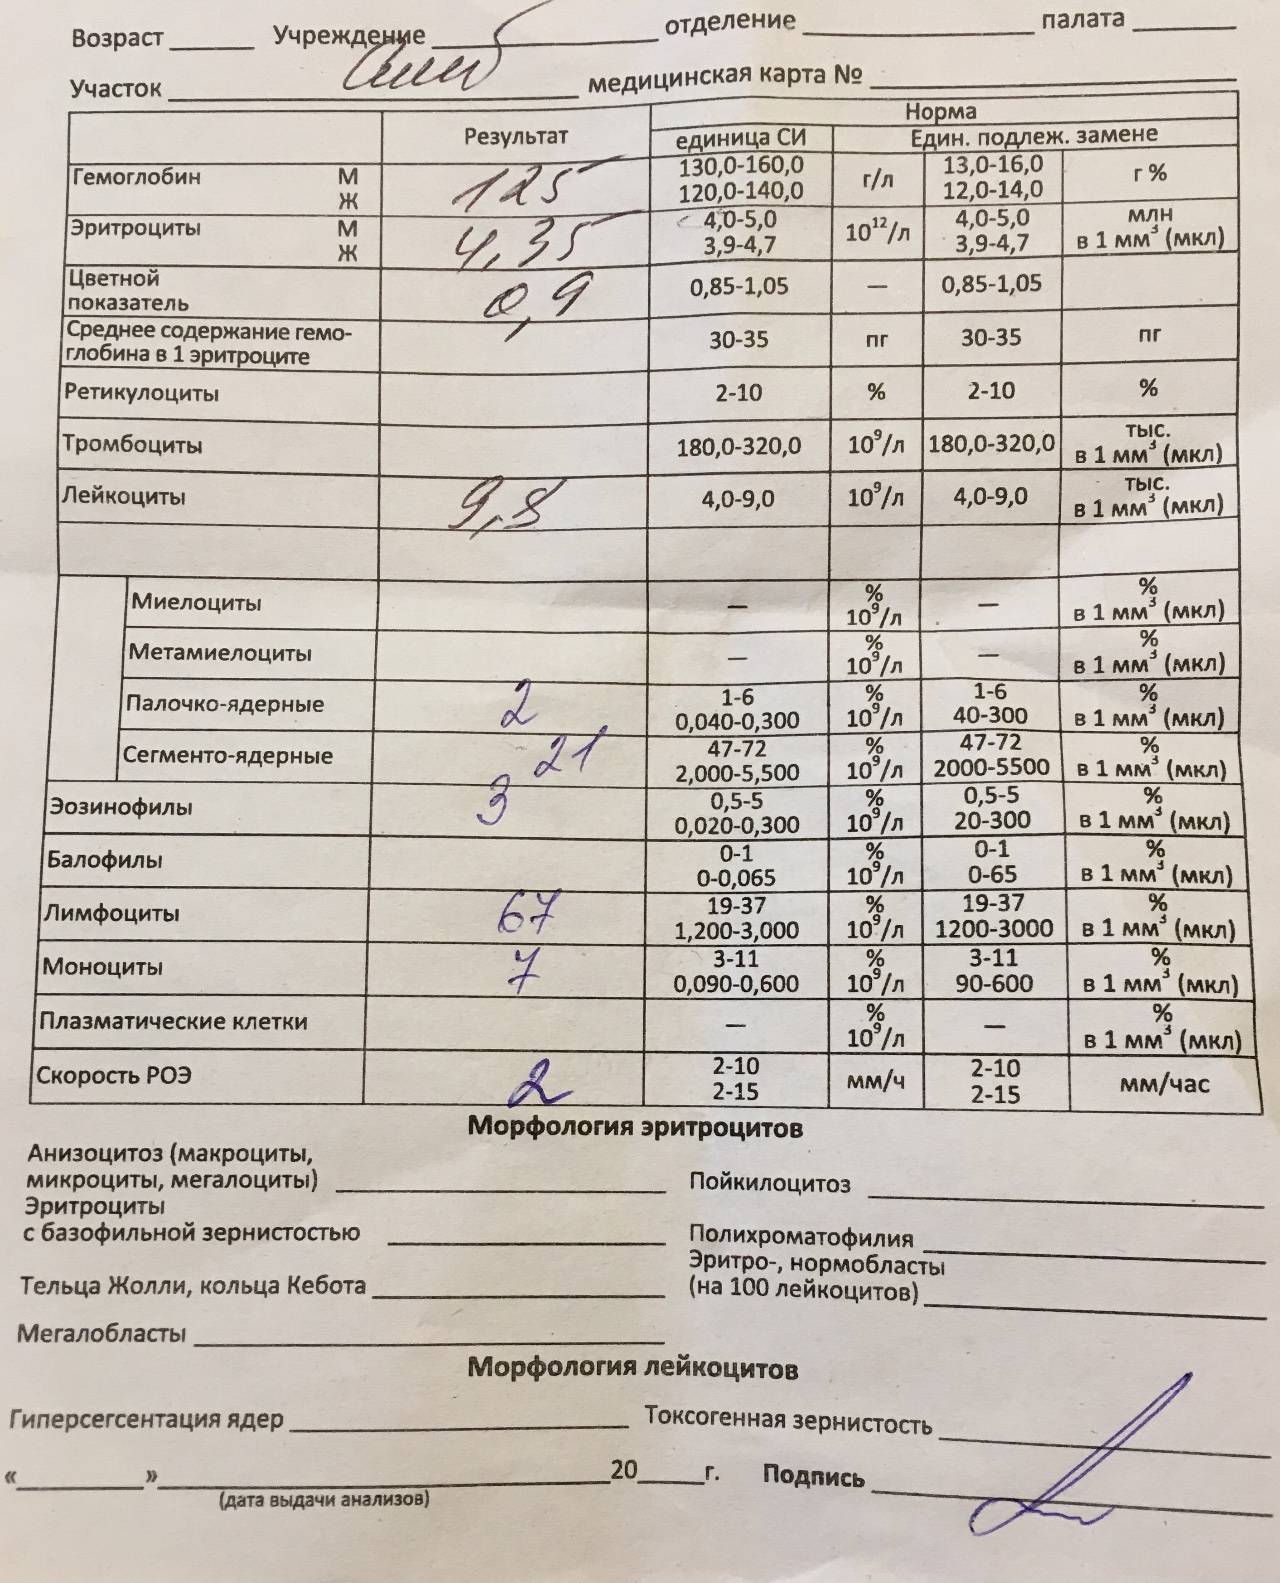 Возраст ______ Учреждение ______ отделение ______ палата ______
Участок ______ медицинская карта № ______
Результат Норма
единица СИ Един. подлеж. замене
Гемоглобин М Ж 125 130,0-160,0 120,0-140,0 г/л 13,0-16,0 12,0-14,0 г %
Эритроциты М Ж 4,35 4,0-5,0 3,9-4,7 10¹²/л 4,0-5,0 3,9-4,7 млн в 1 мм³ (мкл)
Цветной показатель 0,9 0,85-1,05 — 0,85-1,05
Среднее содержание гемо-
глобина в 1 эритроците 30-35 пг 30-35 пг
Ретикулоциты 2-10 % 2-10 %
Тромбоциты 180,0-320,0 10⁹/л 180,0-320,0 тыс. в 1 мм³ (мкл)
Лейкоциты 9,8 4,0-9,0 10⁹/л 4,0-9,0 тыс. в 1 мм³ (мкл)
Миелоциты — % 10⁹/л — % в 1 мм³ (мкл)
Метамиелоциты — % 10⁹/л — % в 1 мм³ (мкл)
Палочко-ядерные 2 1-6 0,040-0,300 % 10⁹/л 1-6 40-300 % в 1 мм³ (мкл)
Сегменто-ядерные 21 47-72 2,000-5,500 % 10⁹/л 47-72 2000-5500 % в 1 мм³ (мкл)
Эозинофилы 3 0,5-5 0,020-0,300 % 10⁹/л 0,5-5 20-300 % в 1 мм³ (мкл)
Балофилы 0-1 0-0,065 % 10⁹/л 0-1 0-65 % в 1 мм³ (мкл)
Лимфоциты 67 19-37 1,200-3,000 % 10⁹/л 19-37 1200-3000 % в 1 мм³ (мкл)
Моноциты 7 3-11 0,090-0,600 % 10⁹/л 3-11 90-600 % в 1 мм³ (мкл)
Плазматические клетки — % 10⁹/л — % в 1 мм³ (мкл)
Скорость РОЭ 2 2-10 2-15 мм/ч 2-10 2-15 мм/час
Морфология эритроцитов
Анизоцитоз (макроциты,
микроциты, мегалоциты) ______ Пойкилоцитоз ______
Эритроциты
с базофильной зернистостью ______ Полихроматофилия ______
Эритро-, нормобласты
Тельца Жолли, кольца Кебота ______ (на 100 лейкоцитов) ______
Мегалобласты ______
Морфология лейкоцитов
Гиперсегсентация ядер ______ Токсогенная зернистость ______
«______»______20____г. Подпись ______
(дата выдачи анализов)